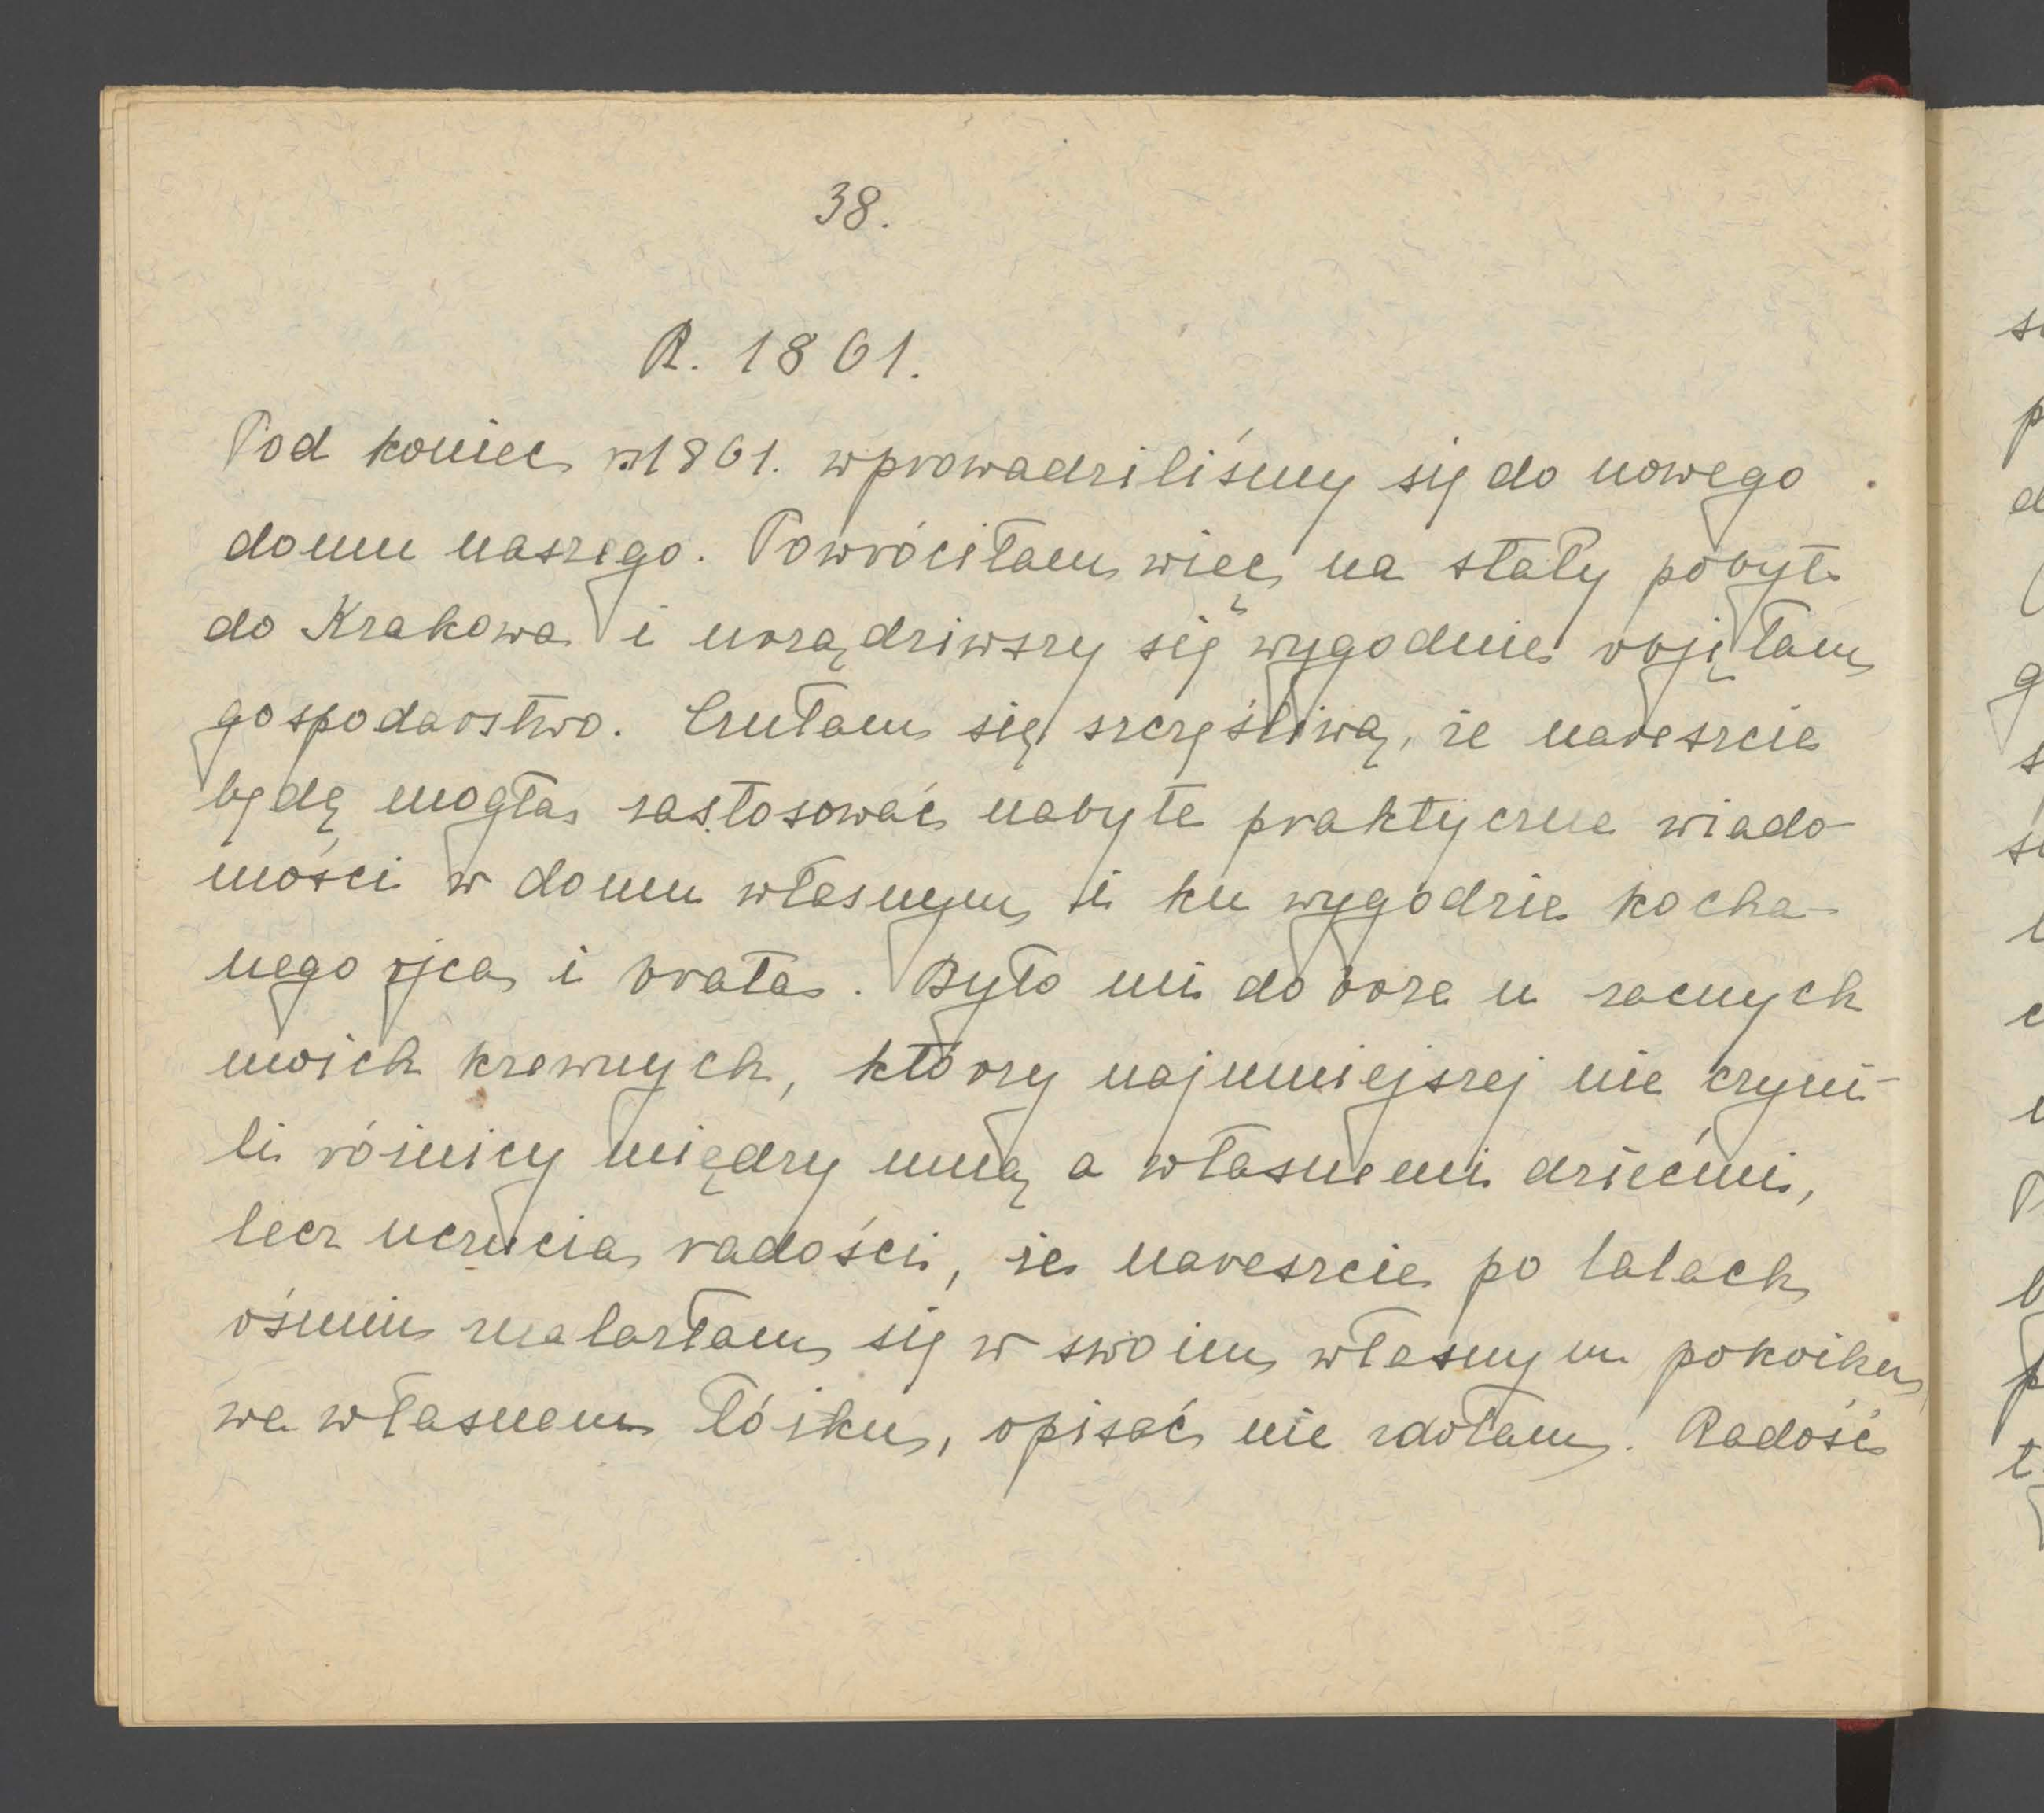 38.
R. 1861.
Pod koniec r. 1861. wprowadziliśmy się do nowego
domu naszego. Powróciłam więc na stały pobyt
do Krakowa i urządziwszy się wygodnie objęłam
gospodarstwo. Czułam się szczęśliwą, że nareszcie
będę mogła zastosować nabyte praktyczne wiado-
mości w domu własnym i ku wygodzie kocha-
nego ojca i brata. Było mi dobrze u zacnych
moich krewnych, którzy najmniejszej nie czyni-
li różnicy między mną a własnemi dziećmi,
lecz uczucia radości, że nareszcie po latach
ośmiu znalazłam się w swoim własnym pokoiku,
we własnem łóżku, opisać nie zdołam. Radość